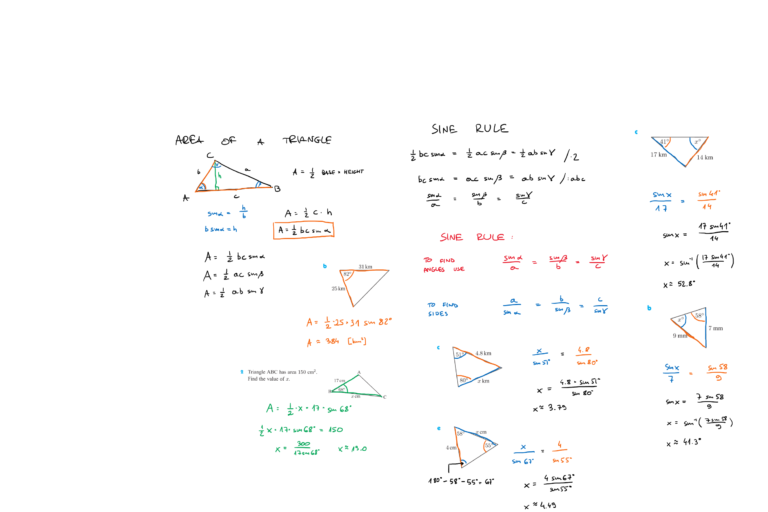 AREA OF A TRIANGLE
C
b
h
a
A
c
B
A = 1/2 BASE × HEIGHT
sin α = h/b
b sin α = h
A = 1/2 c · h
A = 1/2 bc sin α
A = 1/2 bc sin α
A = 1/2 ac sin β
A = 1/2 ab sin γ
b
31 km
82°
25 km
A = 1/2 · 25 · 31 sin 82°
A = 384 [km²]
Triangle ABC has area 150 cm².
Find the value of x.
A
17 cm
68°
B
x cm
C
A = 1/2 · x · 17 · sin 68°
1/2 x · 17 · sin 68° = 150
x = 300/17 sin 68°
SINE RULE
1/2 bc sin α = 1/2 ac sin β = 1/2 ab sin γ / · 2
bc sin α = ac sin β = ab sin γ / : abc
sin α/a = sin β/b = sin γ/c
SINE RULE :
TO FIND ANGLES USE
sin α/a = sin β/b = sin γ/c
TO FIND SIDES
a/sin α = b/sin β = c/sin γ
c
51°
4.8 km
80°
x km
x/sin 51° = 4.8/sin 80°
x = 4.8 · sin 51°/sin 80°
x ≈ 3.79
58°
x cm
4 cm
55°
180° - 58° - 55° = 67°
x/sin 67° = 4/sin 55°
x = 4 sin 67°/sin 55°
x ≈ 4.49
c
41°
x°
17 km
14 km
sin x/17 = sin 41°/14
sin x = 17 sin 41°/14
x = sin⁻¹ (17 sin 41°/14)
x ≈ 52.8°
b
x°
58°
7 mm
9 mm
sin x/7 = sin 58/9
sin x = 7 sin 58/9
x = sin⁻¹ (7 sin 58/9)
x ≈ 41.3°